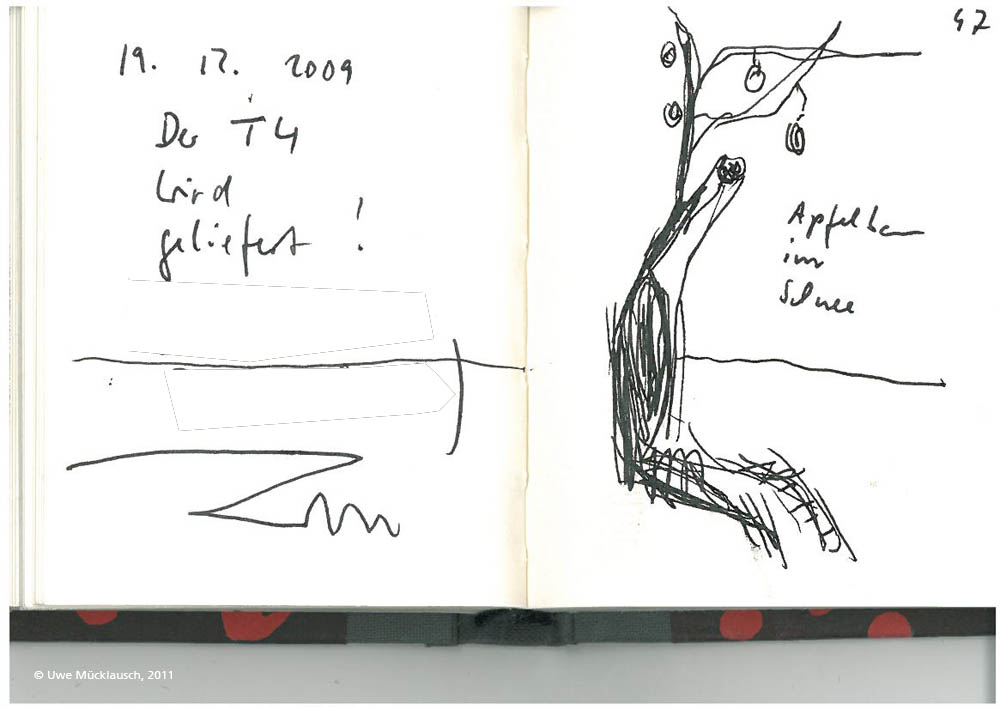 19. 12. 2009
Der T4
wird
geliefert !
47
Apfelbaum
im
Schnee
© Uwe Mücklausch, 2011